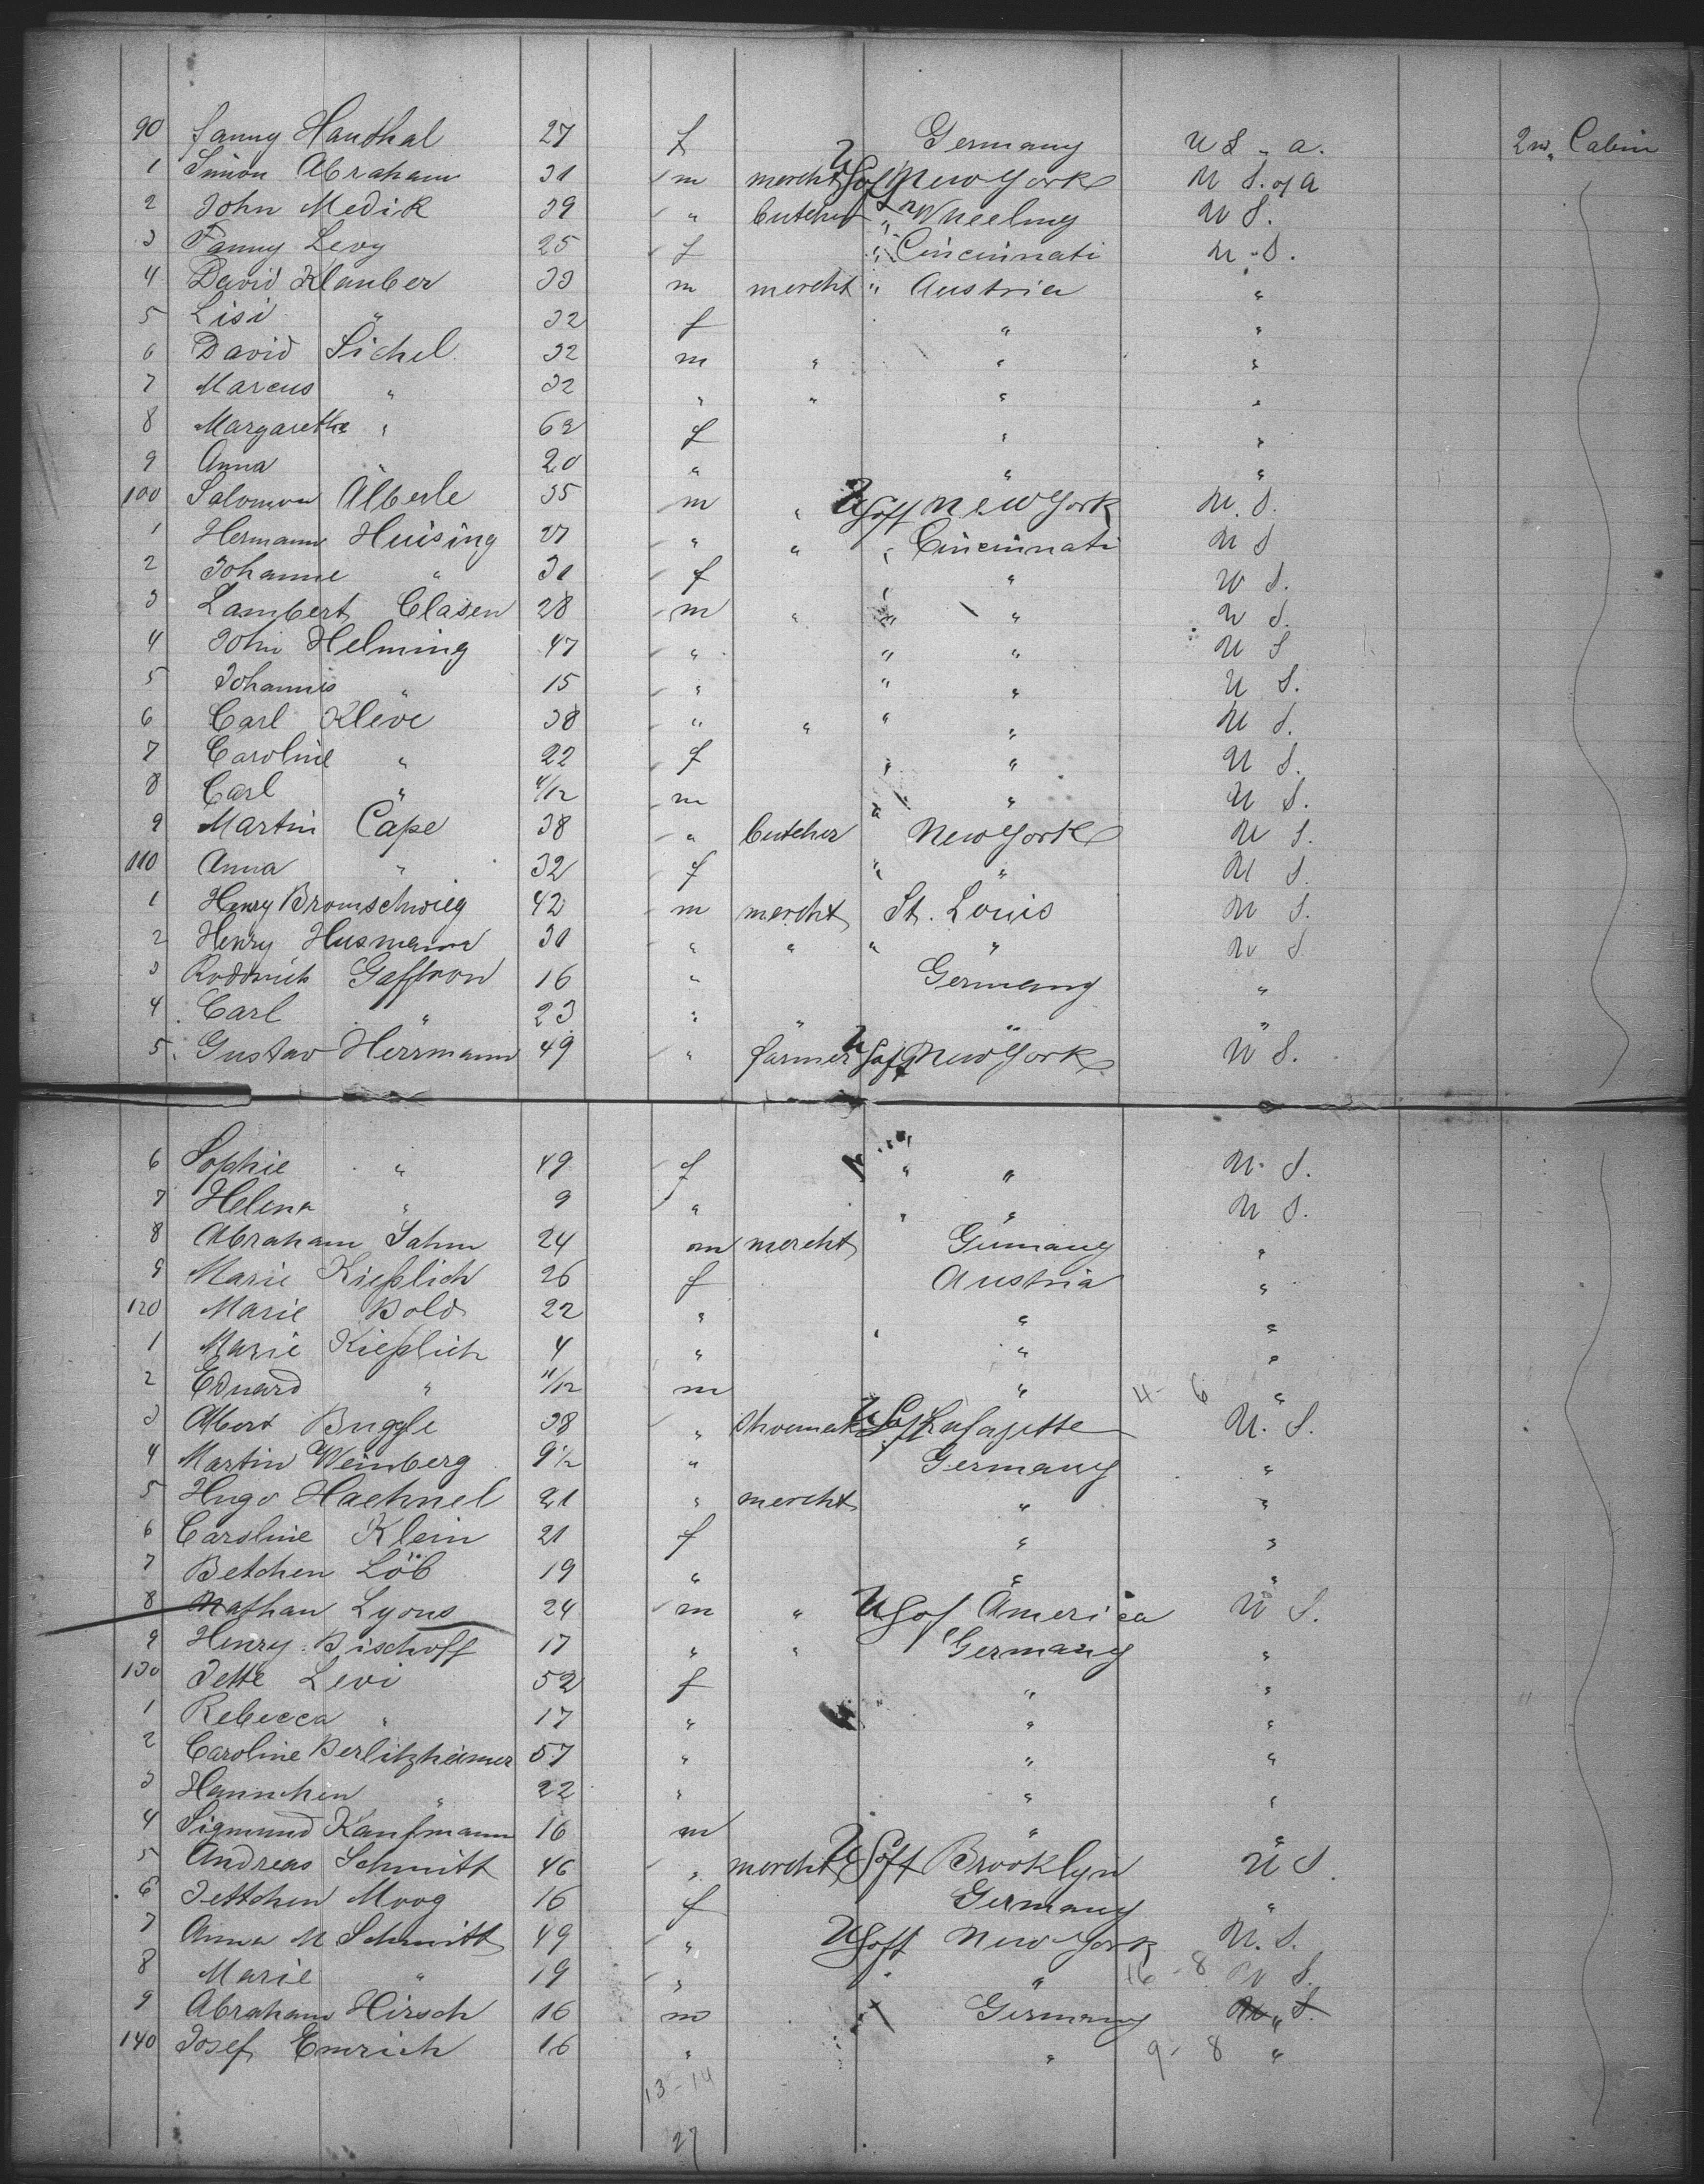 90 Fanny Hanthal 27 f Germany U S " a. 2nd Cabin
1 Simon Abraham 31 m mercht U S of New York U S. of A
2 John Medik 39 " butcher " Wheeling U S.
3 Fanny Levy 25 f " Cincinnati U. S.
4 David Klauber 33 m mercht " Austria "
5 Lisi " 32 f " "
6 David Sichel 32 m " " "
7 Marcus " 32 " " " "
8 Margarethe " 62 f " "
9 Anna " 20 " " "
100 Salomon Alberle 35 m " U S of New York U. S.
1 Hermann Huising 27 " " " Cincinnati U S
2 Johanne " 31 f " " U S.
3 Lambert Clasen 28 m " " " U S.
4 John Helming 47 " " " U S
5 Johannis " 15 " " " U S.
6 Carl Kleve 38 " " " " U S.
7 Caroline " 22 f " " U S.
8 Carl " 4/12 m " " U S.
9 Martin Cape 38 " butcher New York U S.
110 Anna " 32 f " " U S.
1 Henry Bromschwieg 42 m mercht St. Louis U S.
2 Henry Husmann 31 " " " " U S
3 Gaffron 16 " Germany "
4 Carl " 23 " " " "
5 Gustav Herrmann 49 " farmer U S of New York U S.
6 Sophie " 49 f " " U. S.
7 Helena " 9 " " " U S.
8 Abraham Sahm 24 m mercht Germany "
9 Marie Kießlich 26 f Austria "
120 Marie Bold 22 " " "
1 Marie Kießlich 4 " " "
2 Eduard " 11/12 m " 4 - 6 "
3 Albert Buggle 38 " shoemak U S of Lafayette U. S.
4 Martin Weinberg 9 1/2 " Germany "
5 Hugo Haehnel 21 " mercht " "
6 Caroline Klein 21 f " "
7 Betchen Löb 19 " " "
8 Nathan Lyons 24 m " U S of America U S.
9 Henry Bischoff 17 " " Germany "
130 Jette Levi 52 f " "
1 Rebecca " 17 " " "
2 Caroline Berlitzheimer 57 " " "
3 Hannchen " 22 " " "
4 Sigmund Kaufmann 16 m " "
5 Andreas Schmitt 46 " mercht U S of Brooklyn U S.
6 Jettchen Moog 16 f Germany "
7 Anna M Schmitt 49 " U S of New York U. S.
8 Marie " 19 " " " 16 - 8 U S.
9 Abraham Hirsch 16 m Germany U " S.
140 Josef Emrich 16 " " 9 - 8 "
13 - 14
27